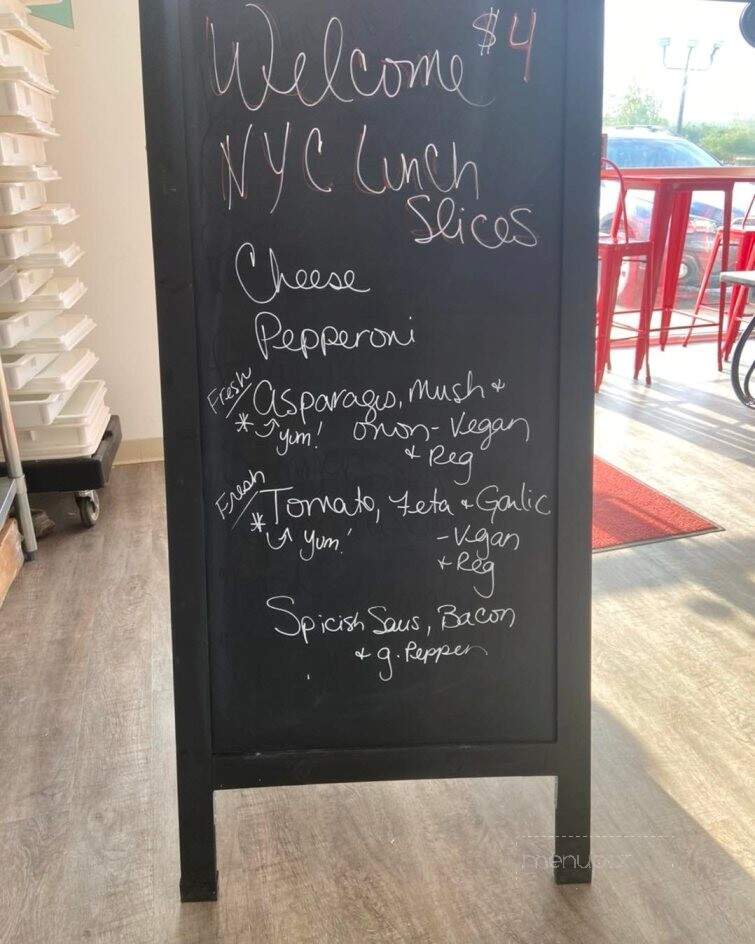 Welcome $4
NYC Lunch
Slices
Cheese
Pepperoni
Fresh
Asparagus, Mush +
* yum! onon - Vegan
+ Reg
Fresh
* Tomato, Feta + Garlic
yum! - Vegan
+ Reg
Spicish Saus, Bacon
+ g. Pepper
menupix